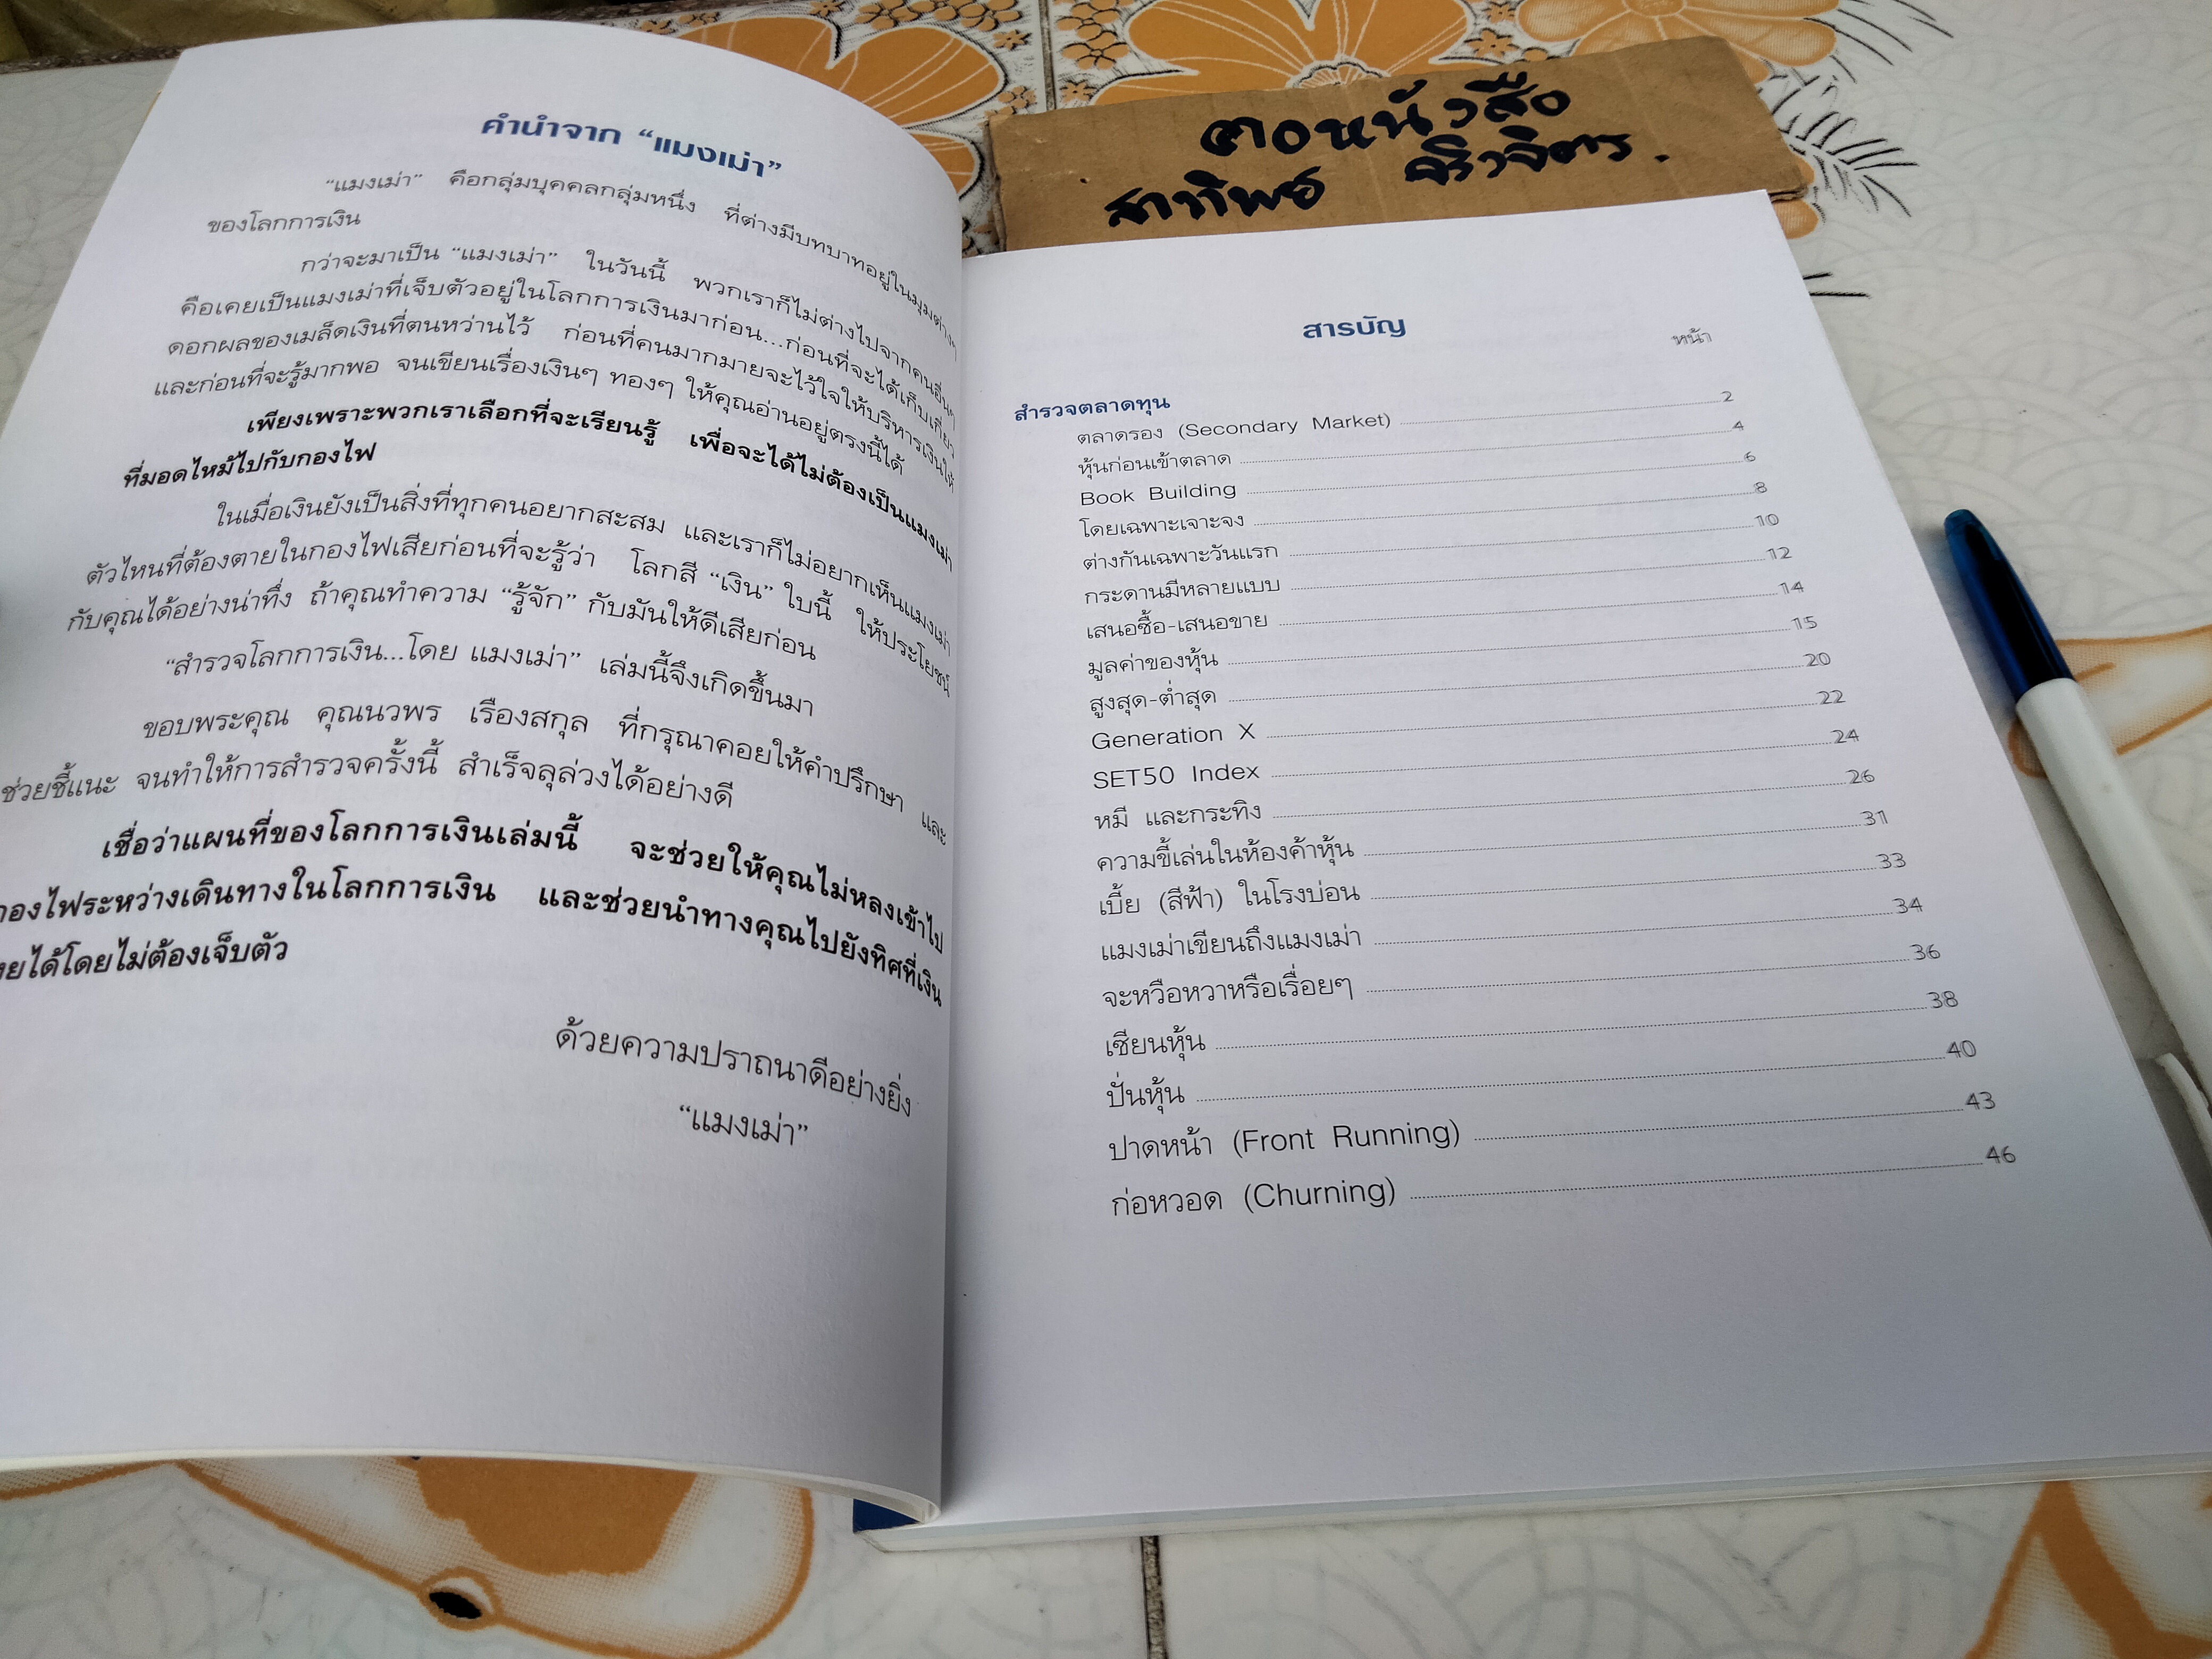 คำนำจาก “แมงเม่า”
“แมงเม่า” คือกลุ่มบุคคลกลุ่มหนึ่ง ที่ต่างมีบทบาทอยู่ในมุมต่างๆ
ของโลกการเงิน
กว่าจะมาเป็น “แมงเม่า” ในวันนี้ พวกเราก็ไม่ต่างไปจากคนอื่นๆ
คือเคยเป็นแมงเม่าที่เจ็บตัวอยู่ในโลกการเงินมาก่อน...ก่อนที่จะได้เก็บเกี่ยว
ดอกผลของเมล็ดเงินที่ตนหว่านไว้ ก่อนที่คนมากมายจะไว้ใจให้บริหารเงินให้
และก่อนที่จะรู้มากพอ จนเขียนเรื่องเงินๆ ทองๆ ให้คุณอ่านอยู่ตรงนี้ได้
เพียงเพราะพวกเราเลือกที่จะเรียนรู้ เพื่อจะได้ไม่ต้องเป็นแมงเม่า
ที่มอดไหม้ไปกับกองไฟ
ในเมื่อเงินยังเป็นสิ่งที่ทุกคนอยากสะสม และเราก็ไม่อยากเห็นแมงเม่า
ตัวไหนที่ต้องตายในกองไฟเสียก่อนที่จะรู้ว่า โลกสี “เงิน” ใบนี้ ให้ประโยชน์
กับคุณได้อย่างน่าทึ่ง ถ้าคุณทำความ “รู้จัก” กับมันให้ดีเสียก่อน
“สำรวจโลกการเงิน...โดย แมงเม่า” เล่มนี้จึงเกิดขึ้นมา
ขอบพระคุณ คุณนวพร เรืองสกุล ที่กรุณาคอยให้คำปรึกษา และ
ช่วยชี้แนะ จนทำให้การสำรวจครั้งนี้ สำเร็จลุล่วงได้อย่างดี
เชื่อว่าแผนที่ของโลกการเงินเล่มนี้ จะช่วยให้คุณไม่หลงเข้าไป
กองไฟระหว่างเดินทางในโลกการเงิน และช่วยนำทางคุณไปยังทิศที่เงิน
ได้โดยไม่ต้องเจ็บตัว
ด้วยความปรารถนาดีอย่างยิ่ง
“แมงเม่า”
ฅอหนังสือ
สาทิพย์ จริงจิตร.
สารบัญ
หน้า
สำรวจตลาดทุน
ตลาดรอง (Secondary Market) 2
หุ้นก่อนเข้าตลาด 4
Book Building 6
โดยเฉพาะเจาะจง 8
ต่างกันเฉพาะวันแรก 10
กระดานมีหลายแบบ 12
เสนอซื้อ-เสนอขาย 14
มูลค่าของหุ้น 15
สูงสุด-ต่ำสุด 20
Generation X 22
SET50 Index 24
หมี และกระทิง 26
ความขี้เล่นในห้องค้าหุ้น 31
เบี้ย (สีฟ้า) ในโรงบ่อน 33
แมงเม่าเขียนถึงแมงเม่า 34
จะหวือหวาหรือเรื่อยๆ 36
เซียนหุ้น 38
ปั่นหุ้น 40
ปาดหน้า (Front Running) 43
ก่อหวอด (Churning) 46